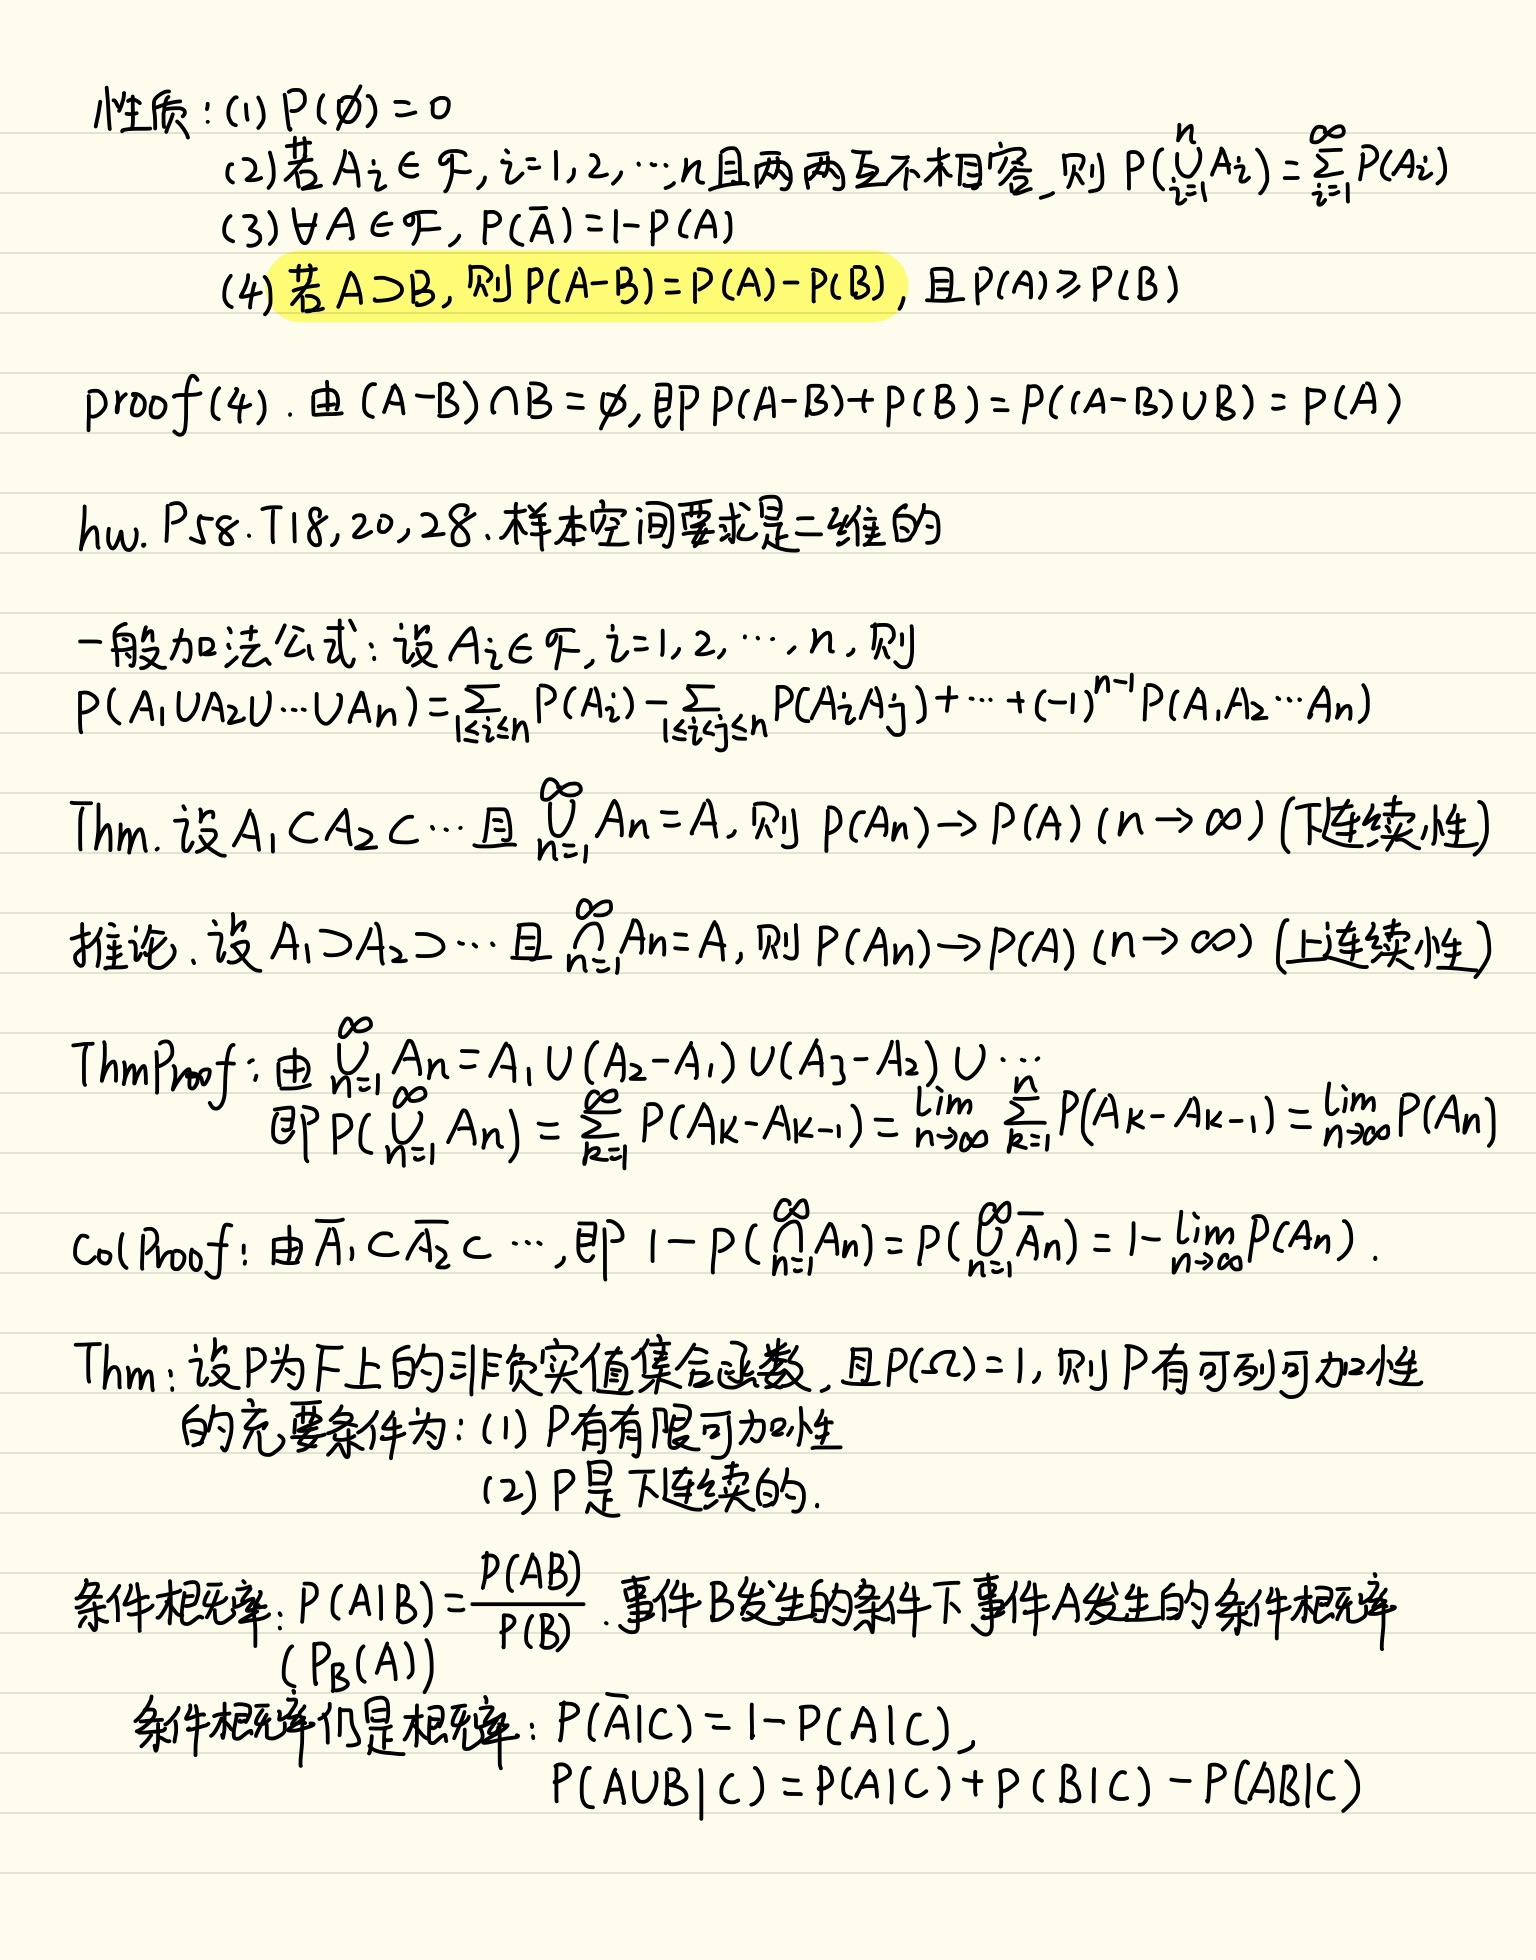 性质：(1) P(∅) = 0
(2) 若 A_i ∈ ℱ, i=1, 2, ⋯, n 且两两互不相容, 则 P(⋃_{i=1}^{n} A_i) = ∑_{i=1}^{∞} P(A_i)
(3) ∀A ∈ ℱ, P(Ā) = 1-P(A)
(4) 若 A⊃B, 则 P(A-B) = P(A) - P(B), 且 P(A) ≥ P(B)
proof (4). 由 (A-B)∩B = ∅, 即 P(A-B) + P(B) = P((A-B)∪B) = P(A)
hw. P58. T18, 20, 28. 样本空间要求是二维的
一般加法公式：设 A_i ∈ ℱ, i=1, 2, ⋯, n, 则
P(A₁∪A₂∪⋯∪A_n) = ∑_{1≤i≤n} P(A_i) - ∑_{1≤i<j≤n} P(A_iA_j) + ⋯ + (-1)^{n-1} P(A₁A₂⋯A_n)
Thm. 设 A₁⊂A₂⊂⋯ 且 ⋃_{n=1}^{∞} A_n = A, 则 P(A_n) → P(A) (n→∞) (下连续性)
推论. 设 A₁⊃A₂⊃⋯ 且 ⋂_{n=1}^{∞} A_n = A, 则 P(A_n) → P(A) (n→∞) (上连续性)
ThmProof: 由 ⋃_{n=1}^{∞} A_n = A₁∪(A₂-A₁)∪(A₃-A₂)∪⋯
即 P(⋃_{n=1}^{∞} A_n) = ∑_{k=1}^{∞} P(A_k-A_{k-1}) = lim_{n→∞} ∑_{k=1}^{n} P(A_k-A_{k-1}) = lim_{n→∞} P(A_n)
ColProof: 由 Ā₁⊂Ā₂⊂⋯, 即 1-P(⋂_{n=1}^{∞} A_n) = P(⋃_{n=1}^{∞} Ā_n) = 1-lim_{n→∞} P(A_n).
Thm: 设P为F上的非负实值集合函数, 且P(Ω)=1, 则P有可列可加性
的充要条件为：(1) P有有限可加性
(2) P是下连续的.
条件概率: P(A|B) = P(AB)/P(B). 事件B发生的条件下事件A发生的条件概率
(P_B(A))
条件概率仍是概率: P(Ā|C) = 1-P(A|C),
P(A∪B|C) = P(A|C) + P(B|C) - P(AB|C)